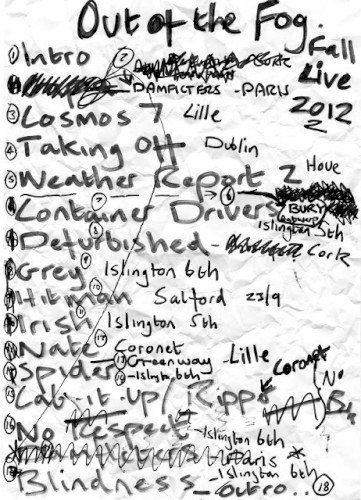 Out of the Fog.
Fall Live 2012
① Intro
② Cork
DAMFICTERS - PARIS
③ Cosmos 7 Lille
④ Taking Off Dublin
⑤ Weather Report 2 Hove
⑥ BURY
⑦ Container Drivers Islington 5th
⑧ Deturbished - Cork
⑨ Grey Islington 6th
⑩ Hitman Salford 23/9
⑪ Irish Islington 5th
⑫ Nate Coronet
⑬ Greenway Lille
⑭ Spider - Islington 6th
⑮ Cab it up / Rippo Coronet No B4
⑯ No Respect - Islington 6th
- Paris *
Blindness - outro.. ⑱